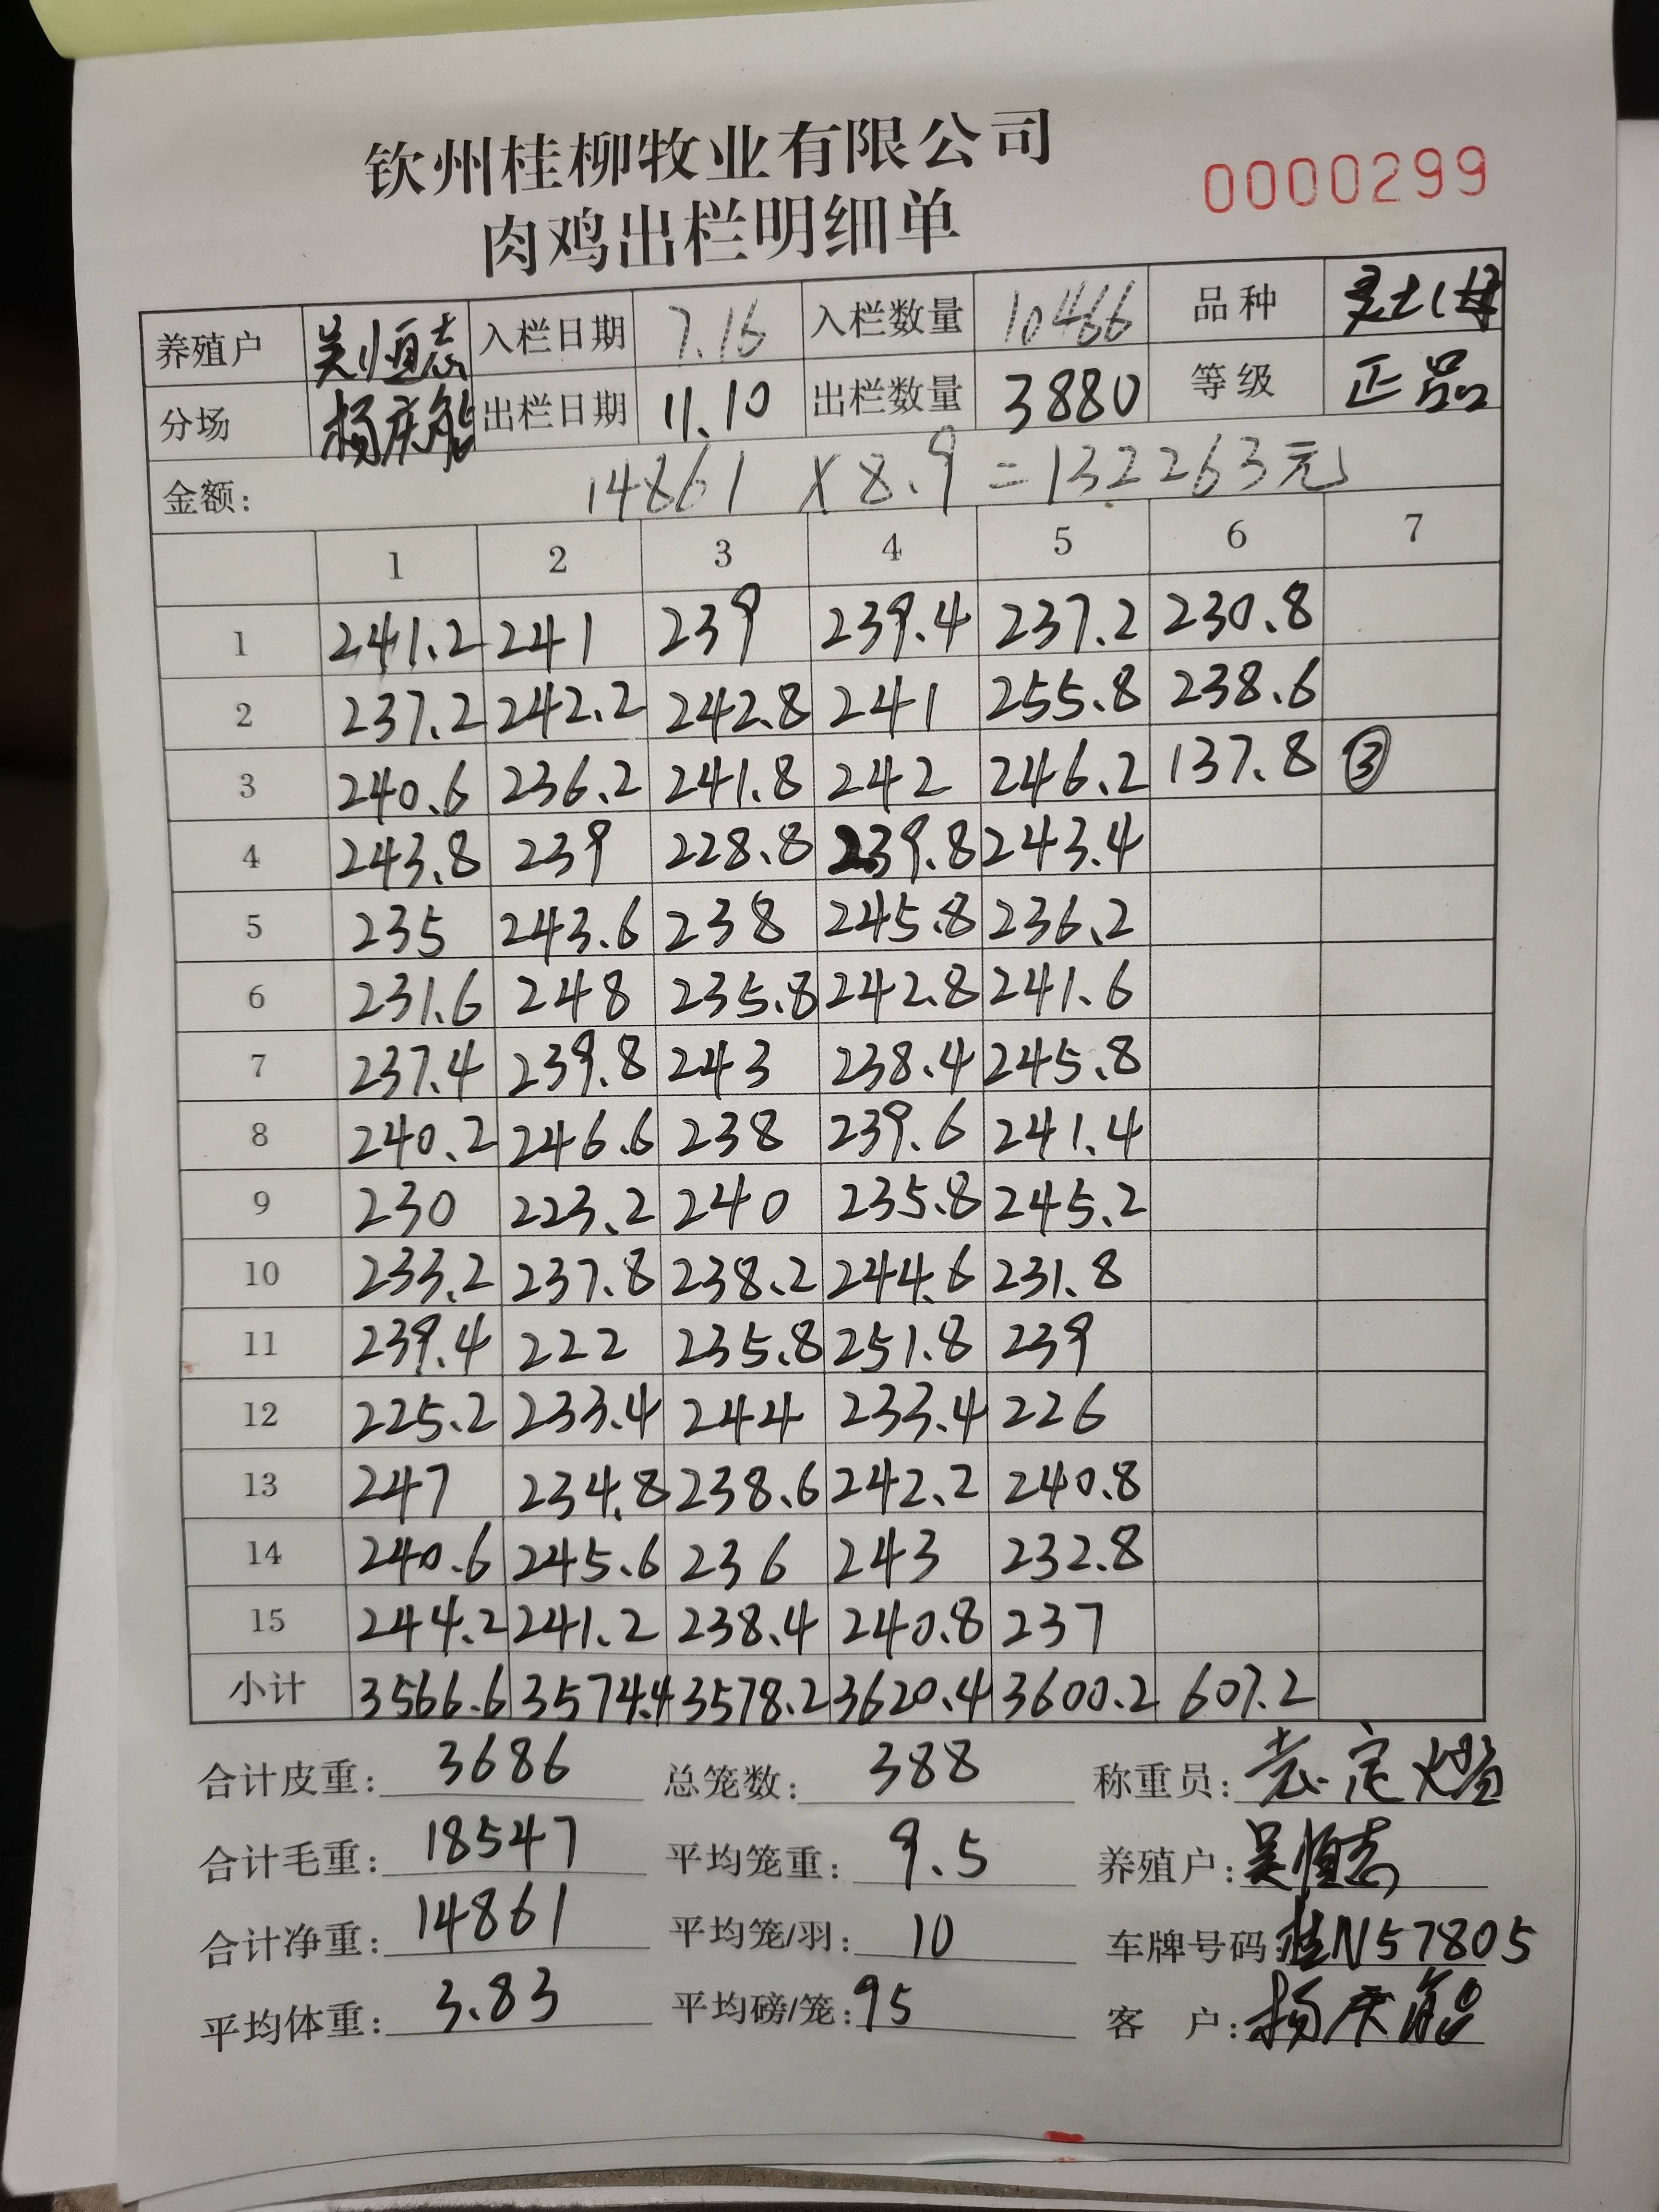 钦州桂柳牧业有限公司
0000299
肉鸡出栏明细单
养殖户 吴恒志 入栏日期 7.16 入栏数量 10466 品种
分场 杨庆能 出栏日期 11.10 出栏数量 3880 等级 正品
金额: 14861 X 8.9 = 132263元
1 2 3 4 5 6 7
1 241.2 241 239 239.4 237.2 230.8
2 237.2 242.2 242.8 241 255.8 238.6
3 240.6 236.2 241.8 242 246.2 137.8 ③
4 243.8 239 228.8 239.8 243.4
5 235 243.6 238 245.8 236.2
6 231.6 248 235.8 242.8 241.6
7 237.4 239.8 243 238.4 245.8
8 240.2 246.6 238 239.6 241.4
9 230 223.2 240 235.8 245.2
10 233.2 237.8 238.2 244.6 231.8
11 239.4 222 235.8 251.8 239
12 225.2 233.4 244 233.4 226
13 247 234.8 238.6 242.2 240.8
14 240.6 245.6 236 243 232.8
15 244.2 241.2 238.4 240.8 237
小计 3566.6 3574.4 3578.2 3620.4 3600.2 607.2
合计皮重: 3686 总笼数: 388 称重员:
合计毛重: 18547 平均笼重: 9.5 养殖户: 吴恒志
合计净重: 14861 平均笼/羽: 10 车牌号码: 桂N57805
平均体重: 3.83 平均磅/笼: 95 客 户: 杨庆能